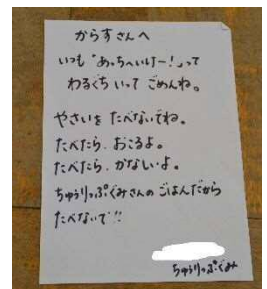 からすさんへ
いつも"あっちへいけー!"って
わるくちいって ごめんね。
やさいを たべないでね。
たべたら、おこるよ。
たべたら、かないよ。
ちゅうりっぷぐみさんの ごはんだから
たべないで!!
ちゅうりっぷぐみ